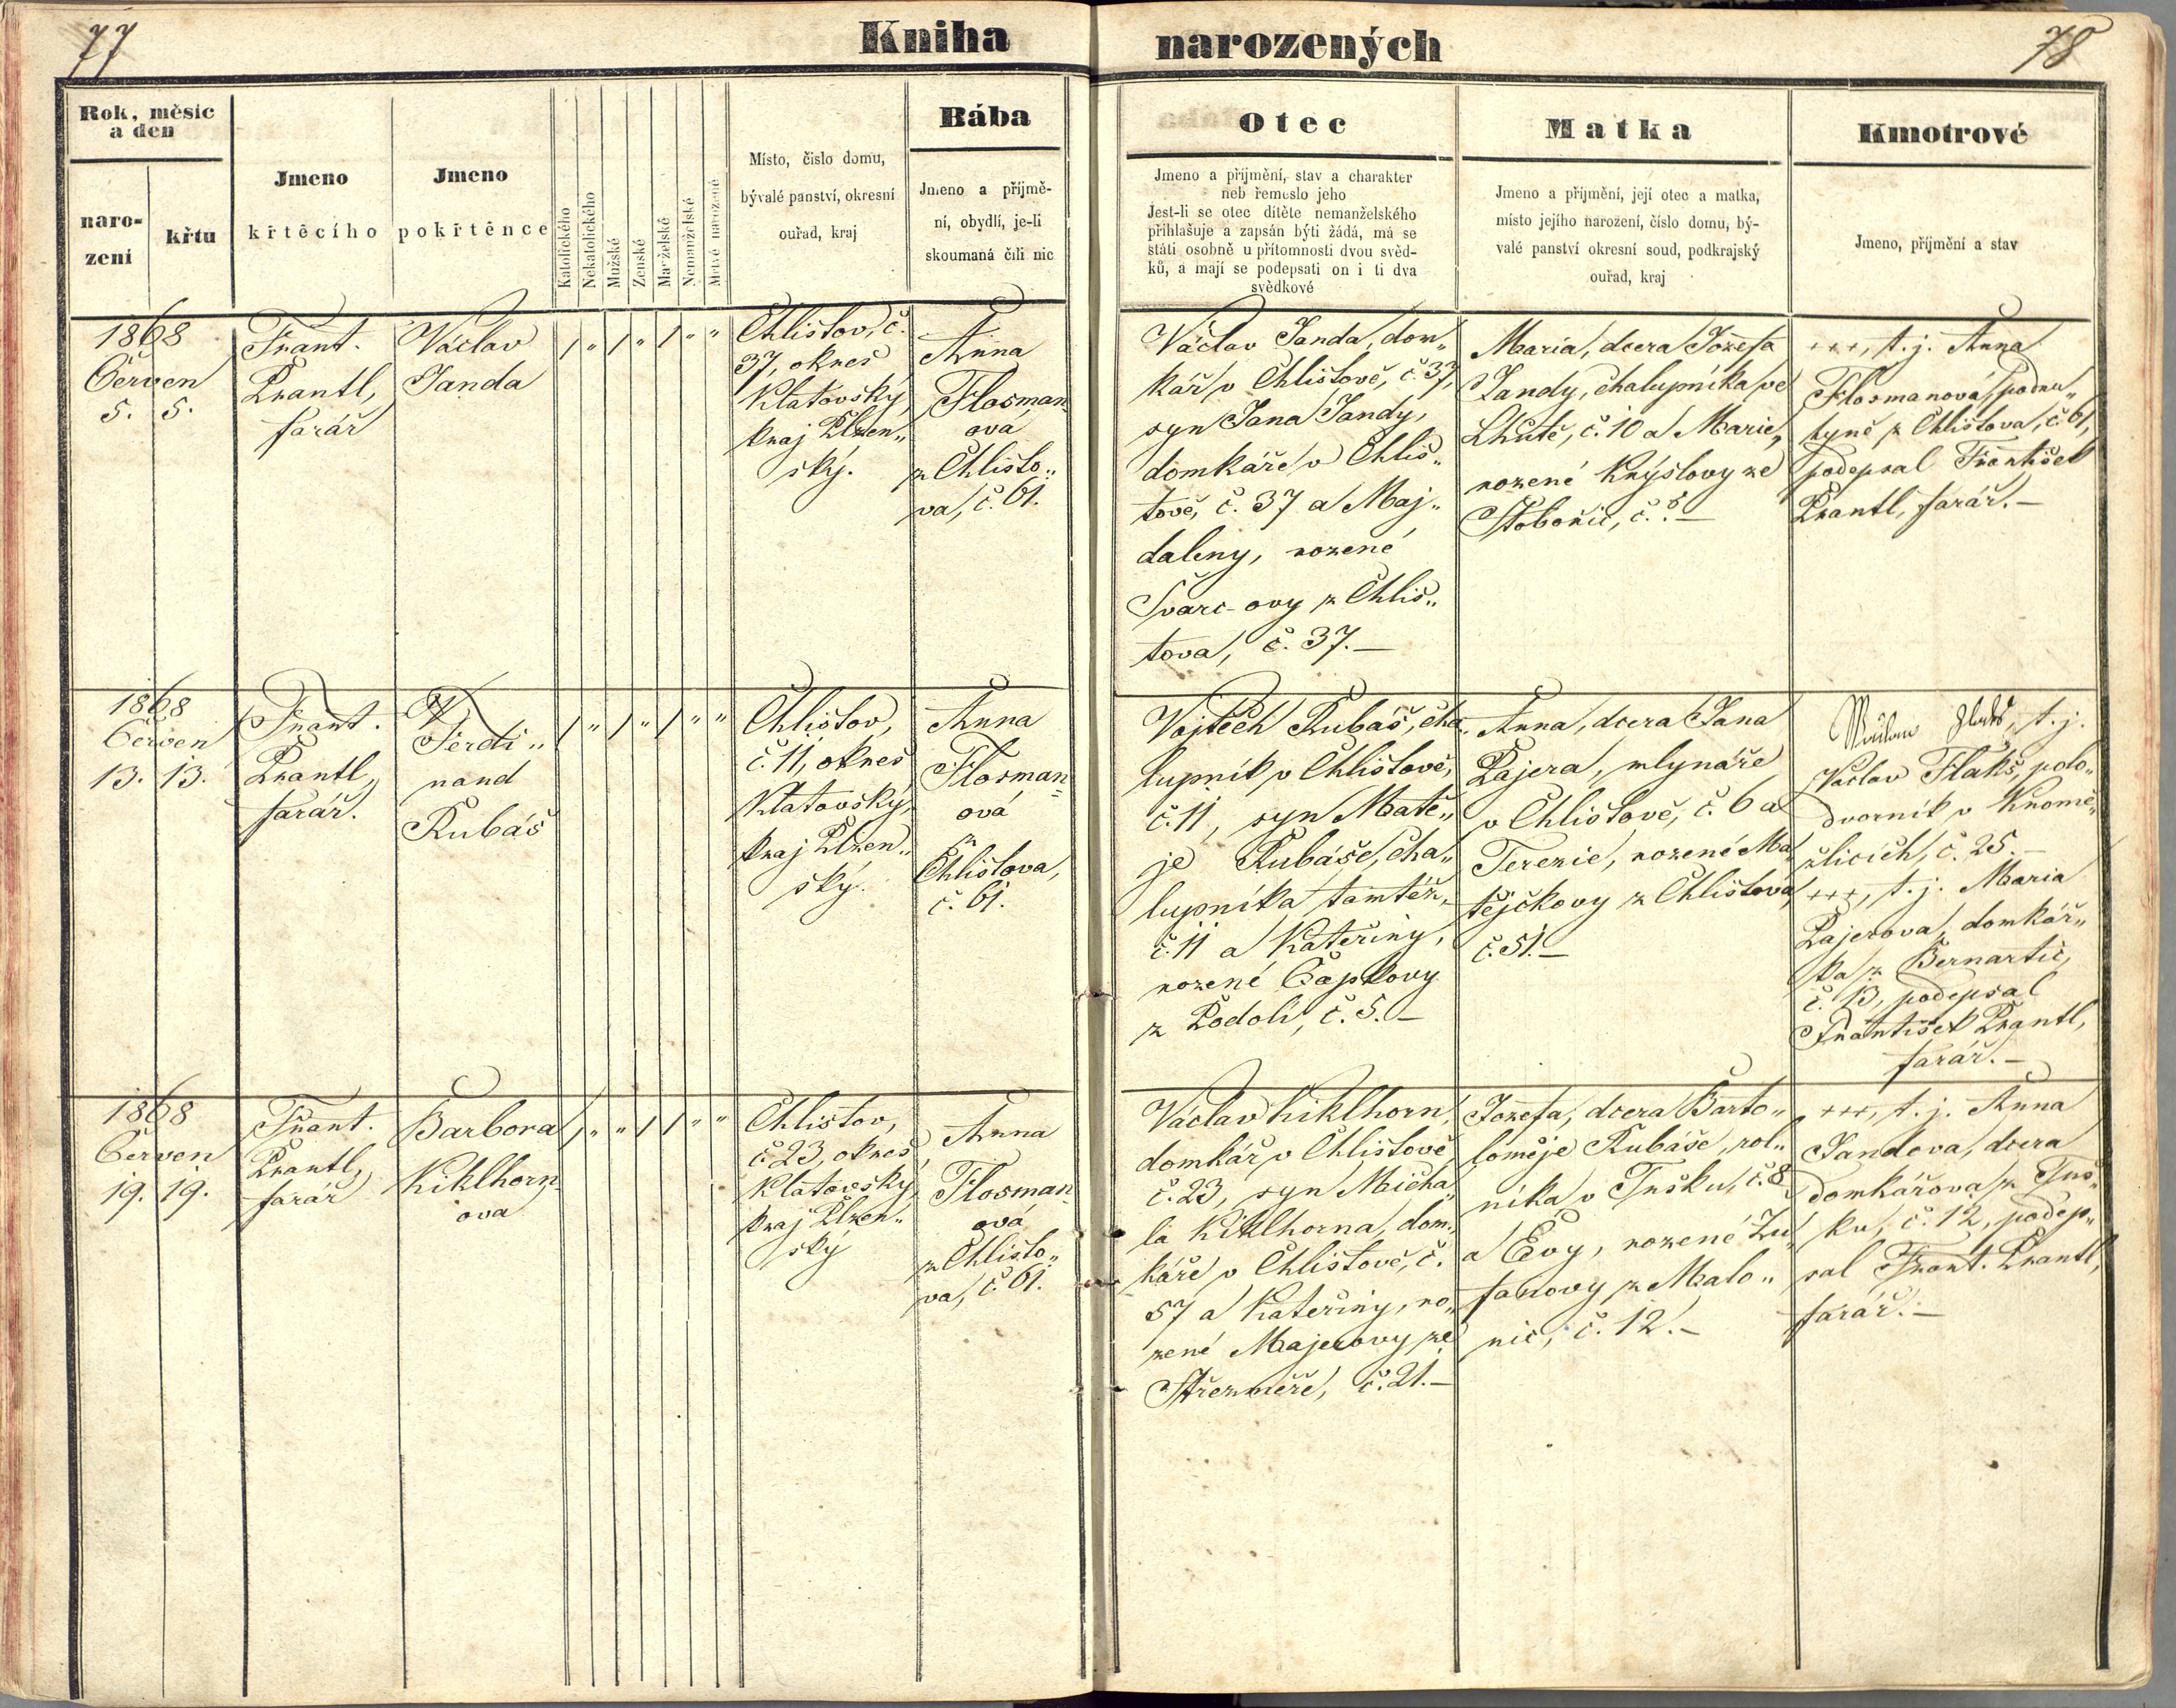 77
Kniha narozených
78
Rok, měsíc
a den
naro-
zení
křtu
Jmeno
křtěcího
Jmeno
pokřtěnce
Katolického
Nekatolického
Mužské
Ženské
Manželské
Nemanželské
Mrtvé narozené
Místo, číslo domu,
bývalé panství, okresní
ouřad, kraj
Bába
Jmeno a příjmě-
ní, obydlí, je-li
skoumaná čili nic
Otec
Jmeno a příjmění, stav a charakter
neb řemeslo jeho
Jest-li se otec dítěte nemanželského
přihlašuje a zapsán býti žádá, má se
státi osobně u přítomnosti dvou svěd-
ků, a mají se podepsati on i ti dva
svědkové
Matka
Jmeno a příjmění, její otec a matka,
místo jejího narození, číslo domu, bý-
valé panství okresní soud, podkrajský
ouřad, kraj
Kmotrové
Jmeno, příjmění a stav
1868
Červen
5. 5.
Frant.
Prantl,
farář
Václav
Janda
/ " / " / " "
Chlistov, č.
37, okres
Klatovský,
kraj Plzen„
ský.
Anna
Flosman„
ová
z Chlisto„
va, č. 61.
Václav Janda, dom„
kář v Chlistově, č. 37,
syn Jana Jandy,
domkáře v Chlis„
tově, č. 37 a Maj„
daleny, rozené
Švarc-ovy z Chlis„
tova, č. 37.—
Maria, dcera Jozefa
Jandy, chalupníka ve
Lhůtě, č. 10 a Marie,
rozené Knýslovy ze
Stobořic, č. 8.—
+++, t. j. Anna
Flosmanová, podru„
kyně z Chlistova, č. 61,
podepsal František
Prantl, farář.—
1868
Červen
13. 13.
Frant.
Prantl,
farář.
Ferdi„
nand
Rubáš
/ " / " / " "
Chlistov,
č. 11, okres
Klatovský,
kraj Plzen„
ský.
Anna
Flosman„
ová
z
Chlistova,
č. 61.
Vojtěch Rubáš, cha„
lupník v Chlistově,
č. 11, syn Matě„
je Rubáše, cha„
lupníka tamtéž,
č. 11 a Kateřiny,
rozené Čapkovy
z Podolí, č. 5.—
Anna, dcera Jana
Pajera, mlynáře
v Chlistově, č. 6 a
Terezie, rozené Ma„
tějčkovy z Chlistova,
č. 51.—
t. j.
Václav Flaks, polo„
dvorník v Kromě„
žlicích, č. 25.—
+++, t. j. Maria
Pajerova, domkář„
ka z Bernartic,
č. 13, podepsal
František Prantl,
farář.—
1868
Červen
19. 19.
Frant.
Prantl,
farář
Barbora
Kiklhorn„
ova
/ " " / / " "
Chlistov,
č. 23, okres
Klatovský,
kraj Plzen„
ský
Anna
Flosman„
ová
z Chlisto„
va, č. 61.
Václav Kiklhorn,
domkář v Chlistově
č. 23, syn Micha„
la Kiklhorna, dom„
káře v Chlistově, č.
57 a Kateřiny, ro„
zené Majerovy ze
Střezměře, č. 21.—
Jozefa, dcera Barto„
loměje Rubáše, rol„
níka v Tusku, č. 8
a Evy, rozené Zu„
fanovy z Malo„
nic, č. 12.—
+++, t. j. Anna
Jandova, dcera
domkářova z Tus„
ku, č. 12, podep„
sal Frant. Prantl,
farář.—